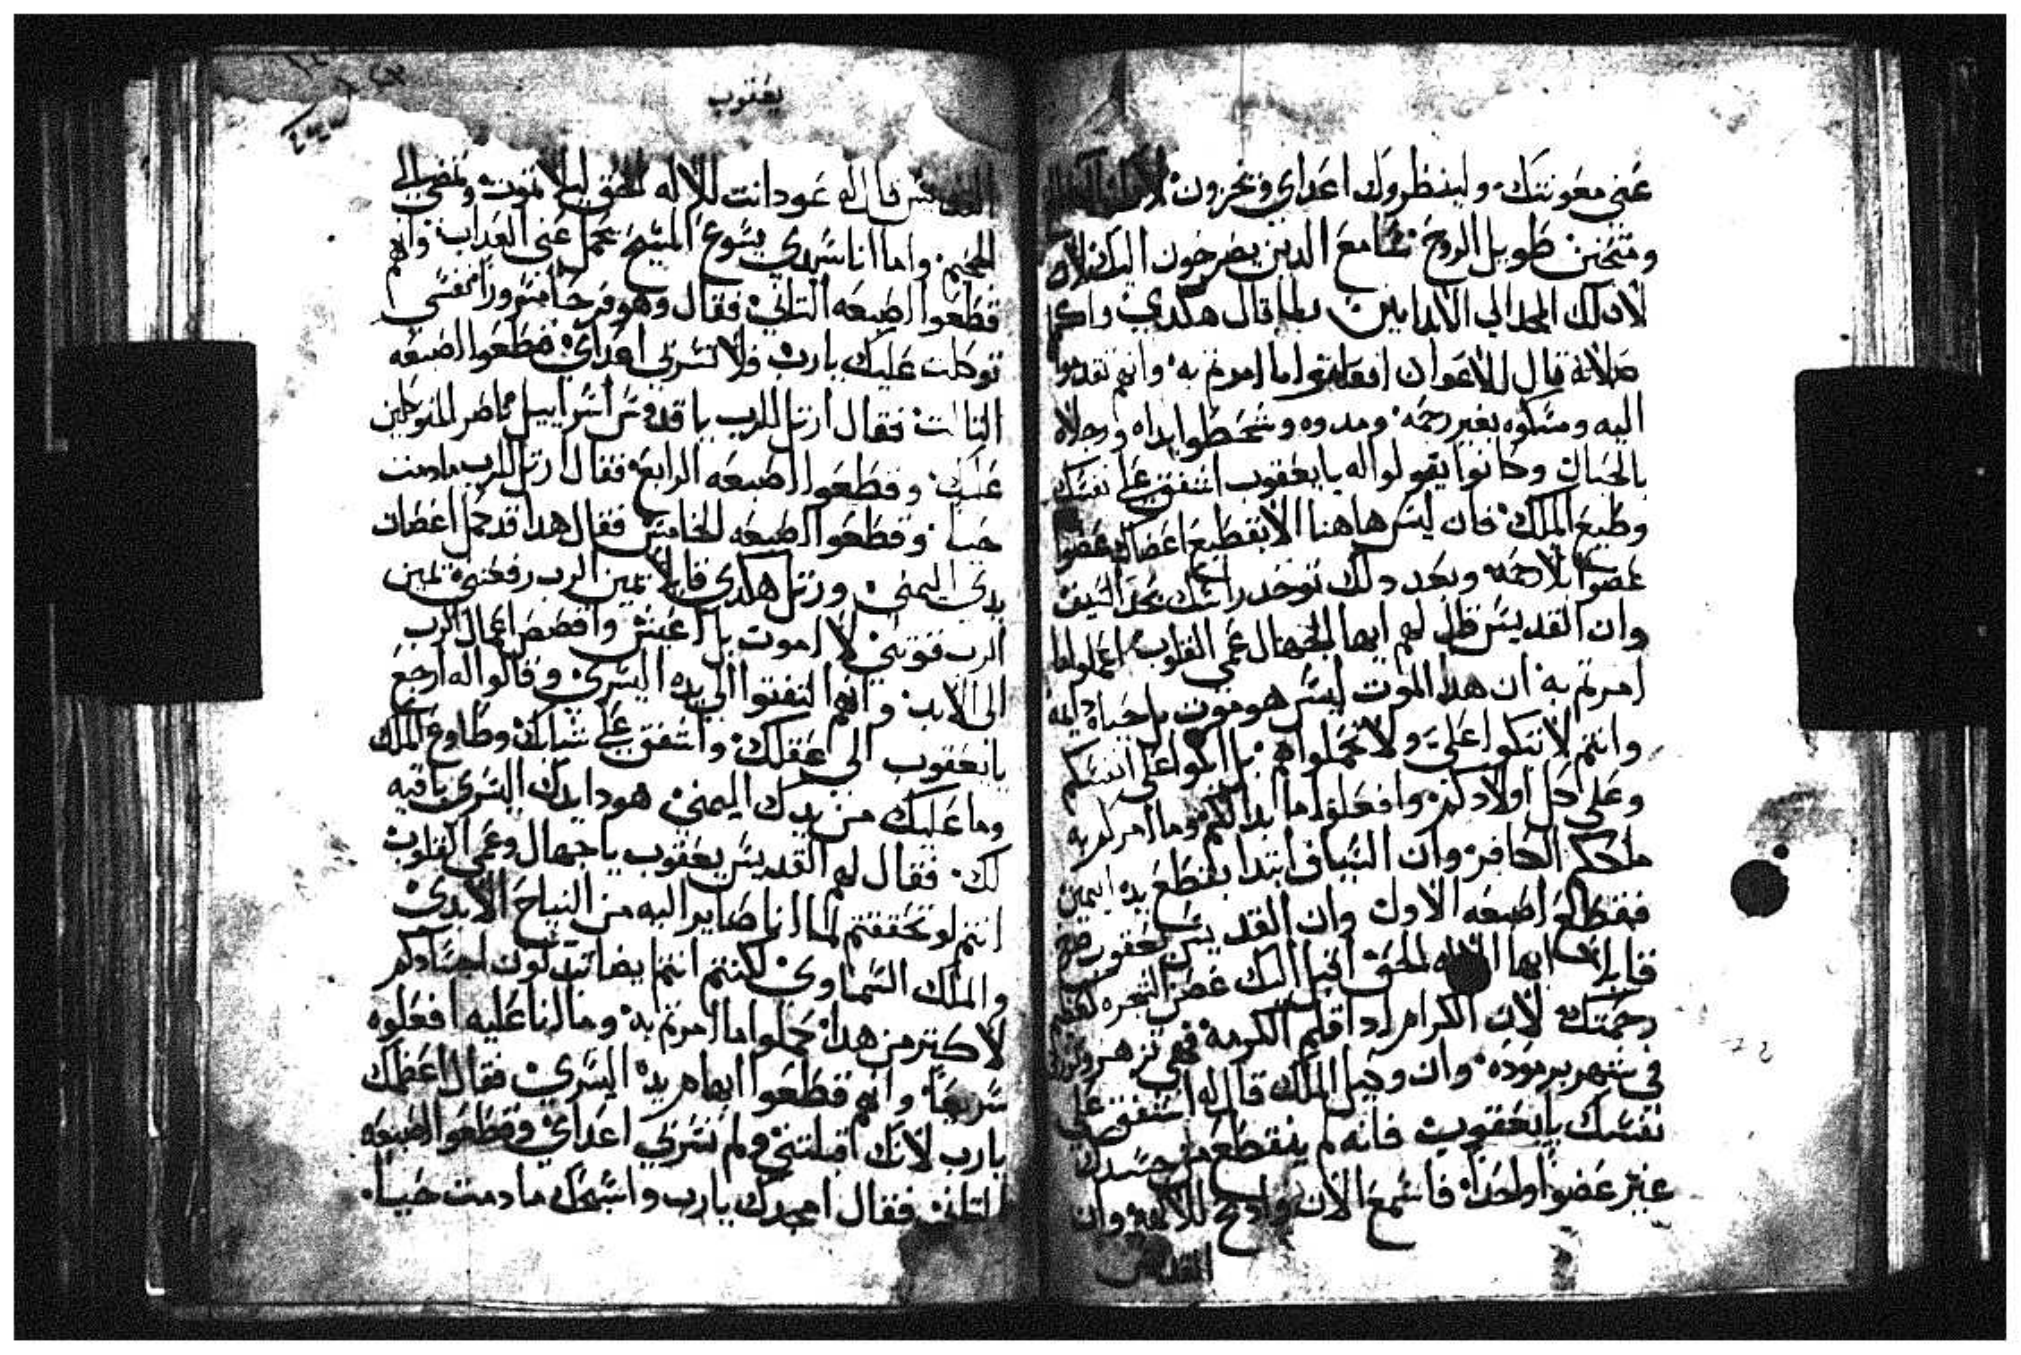 عني معونتك ولينظروك اعداي ويخزون
ومتحنن طويل الروح مع الدين يصرخون اليك لان
لان لك المجد الي الابد امين ولما قال هكدي واكمل
صلاته قال للاعوان افعلوا ما امرتم به وانهم تقدموا
اليه ومسكوه بغير رحمه ومدوه وشحطوا يداه ورجلاه
بالحبال وكانوا يقولوا له يا يعقوب اشفق علي نفسك
وطيع الملك فان ليس هاهنا الا تقطيع اعضاك عضوا
عضوا بلا رحمه وبعد دلك توخد راسك بحد السيف
وان القديس قال لهم ايها الجهال عمي القلوب اعملوا ما
امرتم به ان هدا الموت ليس هو موت بل حياه دايمه
وانتم لا تبكوا علي ولا تحملوا هم بل ابكوا علي انفسكم
وعلي اولادكم وافعلوا ما بدا لكم وما امركم به
ملككم الكافر وان السياف ابتدا يقطع يده اليمين
فقطع اصبعه الاول وان القديس يعقوب صرخ
قايلا ايها الاله الحق اقبل اليك غصن الشجره كعظيم
رحمتك لان الكرام ادا قلم الكرمه فهي تزهر
في شهر برموده وان وكيل الملك قال له اشفق علي
نفسك يا يعقوب فانه لم ينقطع من جسدك
غير عضوا واحدا فاسمع الان وادبح للالهه وان
القديس
يعقوب
القديس قال له عود انت للاله الحق ليلا تموت وتمضي الي
الجحيم واما انا سيدي يسوع المسيح يحمل عني العداب وانهم
قطعوا اصبعه التاني فقال وهو فرحا مسرورا نفسي
توكلت عليك يا رب فلا تسر بي اعداي فقطعوا اصبعه
التالت فقال ارتل للرب يا قدوس اسراييل ناصر المتوكلين
عليك وقطعوا اصبعه الرابع فقال ارتل للرب مادمت
حيا وقطعوا اصبعه الخامس فقال هدا قد كمل اغصان
يدي اليمني ورتل هكدي قايلا يمين الرب رفعتني يمين
الرب قوتني لا اموت بل اعيش واقصص اعمال الرب
الي الابد وانهم التفتوا الي يده اليسري وقالوا له ارجع
يا يعقوب الي عقلك واشفق علي شبابك وطاوع الملك
وما عليك من يدك اليمني هودا يدك اليسري باقيه
لك فقال لهم القديس يعقوب يا جهال وعمي القلوب
انتم لو تحققتم لما انا صاير اليه من النياح الابدي
والملك السماوي لكنتم انتم ايضا تبدلون اجسادكم
لاكتر من هدا كملوا ما امرتم به وما لنا عليه افعلوه
سريعا وانهم قطعوا ابهام يده اليسري فقال اعظمك
يا رب لانك اقبلتني ولم تسر بي اعداي وقطعوا اصبعه
التاني فقال امجدك يا رب واسبحك ما دمت حيا